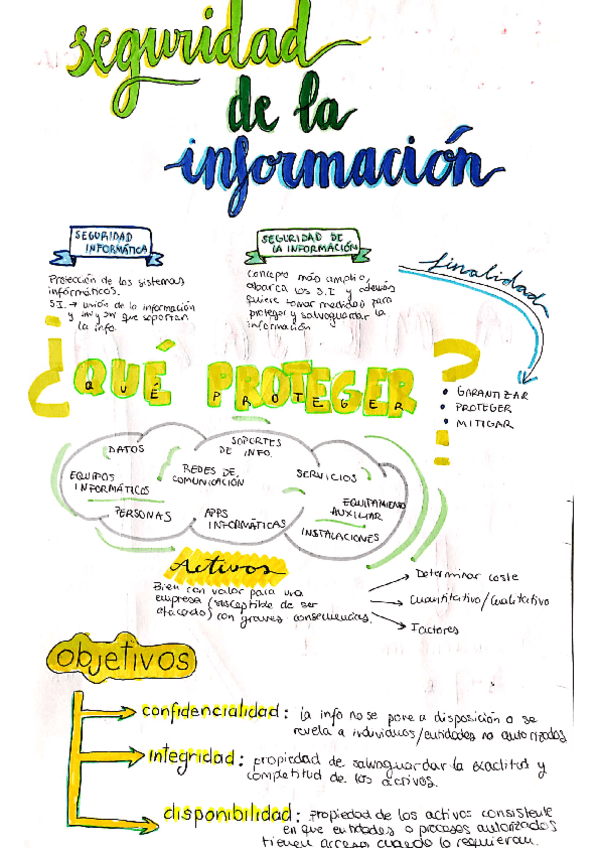 seguridad
de la
información
SEGURIDAD
INFORMÁTICA
Protección de los sistemas
informáticos.
S.I. → unión de la información
y que soportan
la info.
SEGURIDAD DE
LA INFORMACIÓN
Concepto más amplio,
abarca los S.I y además
quiere tomar medidas para
proteger y salvaguardar la
información
finalidad
• GARANTIZAR
• PROTEGER
• MITIGAR
¿QUÉ PROTEGER?
DATOS
SOPORTES
DE INFO.
EQUIPOS
INFORMÁTICOS
REDES DE
COMUNICACIÓN
SERVICIOS
PERSONAS
APPS
INFORMÁTICAS
EQUIPAMIENTO
AUXILIAR
INSTALACIONES
Activos
Bien con valor para una
empresa (susceptible de ser
atacado) con graves consecuencias.
Determinar coste
Cuantitativo/Cualitativo
Factores
objetivos
confidencialidad: la info no se pone a disposición o se
revela a individuos/entidades no autorizadas
integridad: propiedad de salvaguardar la exactitud y
completitud de los activos.
disponibilidad: propiedad de los activos consistente
en que entidades o procesos autorizados
tienen acceso cuando lo requieran.